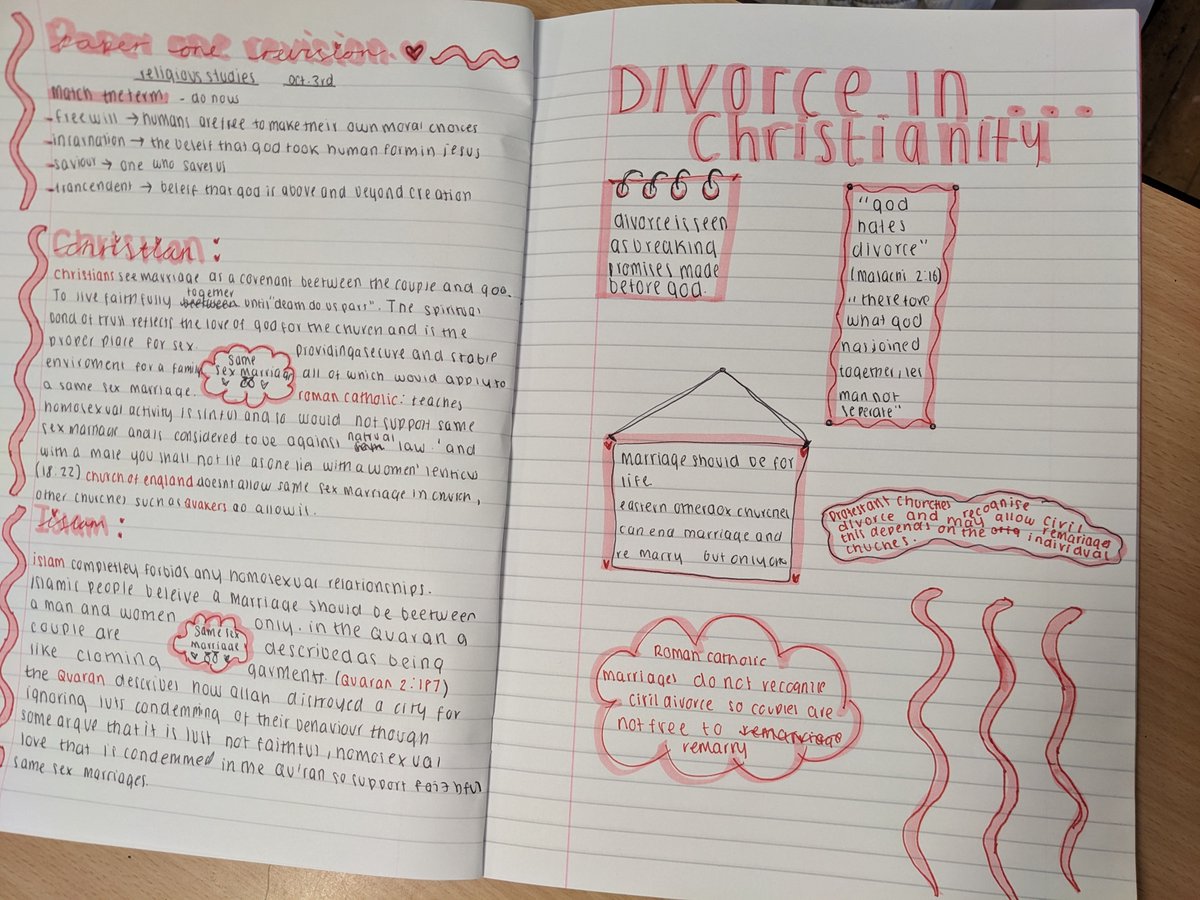 Paper one revision.
religious studies oct. 3rd
match the term - do now
- free will → humans are free to make their own moral choices
- incarnation → the beleif that god took human form in jesus
- saviour → one who saves us
- trancendent → beleif that god is above and beyond creation
Christian:
christians see marriage as a covenant beetween the couple and god.
To live faithfully together beetween until "death do us part". The spiritual
bond of trust reflects the love of god for the church and is the
proper place for sex. providing a secure and stable
enviroment for a family all of which would apply to
a same sex marriage. roman catholic: teaches
same
sex marriage
homosexual activity is sinful and so would not support same
sex marriage and is considered to be against natrual law 'and
with a male you shall not lie as one lies with a women'
(18:22) church of england doesnt allow same sex marriage in church,
other churches such as quakers do allow it.
Islam:
islam completley forbids any homosexual relationships.
Islamic people beleive a marriage should be beetween
a man and women only. in the Quaran a
couple are described as being
like clothing garments (Quaran 2:187)
same sex
marriage
the Quaran describes how allah distroyed a city for
ignoring luts condemming of their behaviour though
some argue that it is lust not faithful, homosexual
love that is condemmed in the Qu'ran so support faithful
same sex marriages.
Divorce in ...
Christianity
divorce is seen
as breaking
promises made
before god.
"god
hates
divorce"
(malachi 2:16)
"therefore
what god
has joined
together, let
man not
seperate"
marriage should be for
life
eastern otherdox churches
can end marriage and
re marry but only
Protestant churches recognise
divorce and may allow civil remariages
this depends on the individual
chuches.
Roman catholic
marriages do not recognise
civil divorce so couples are
not free to remarriage
remarry